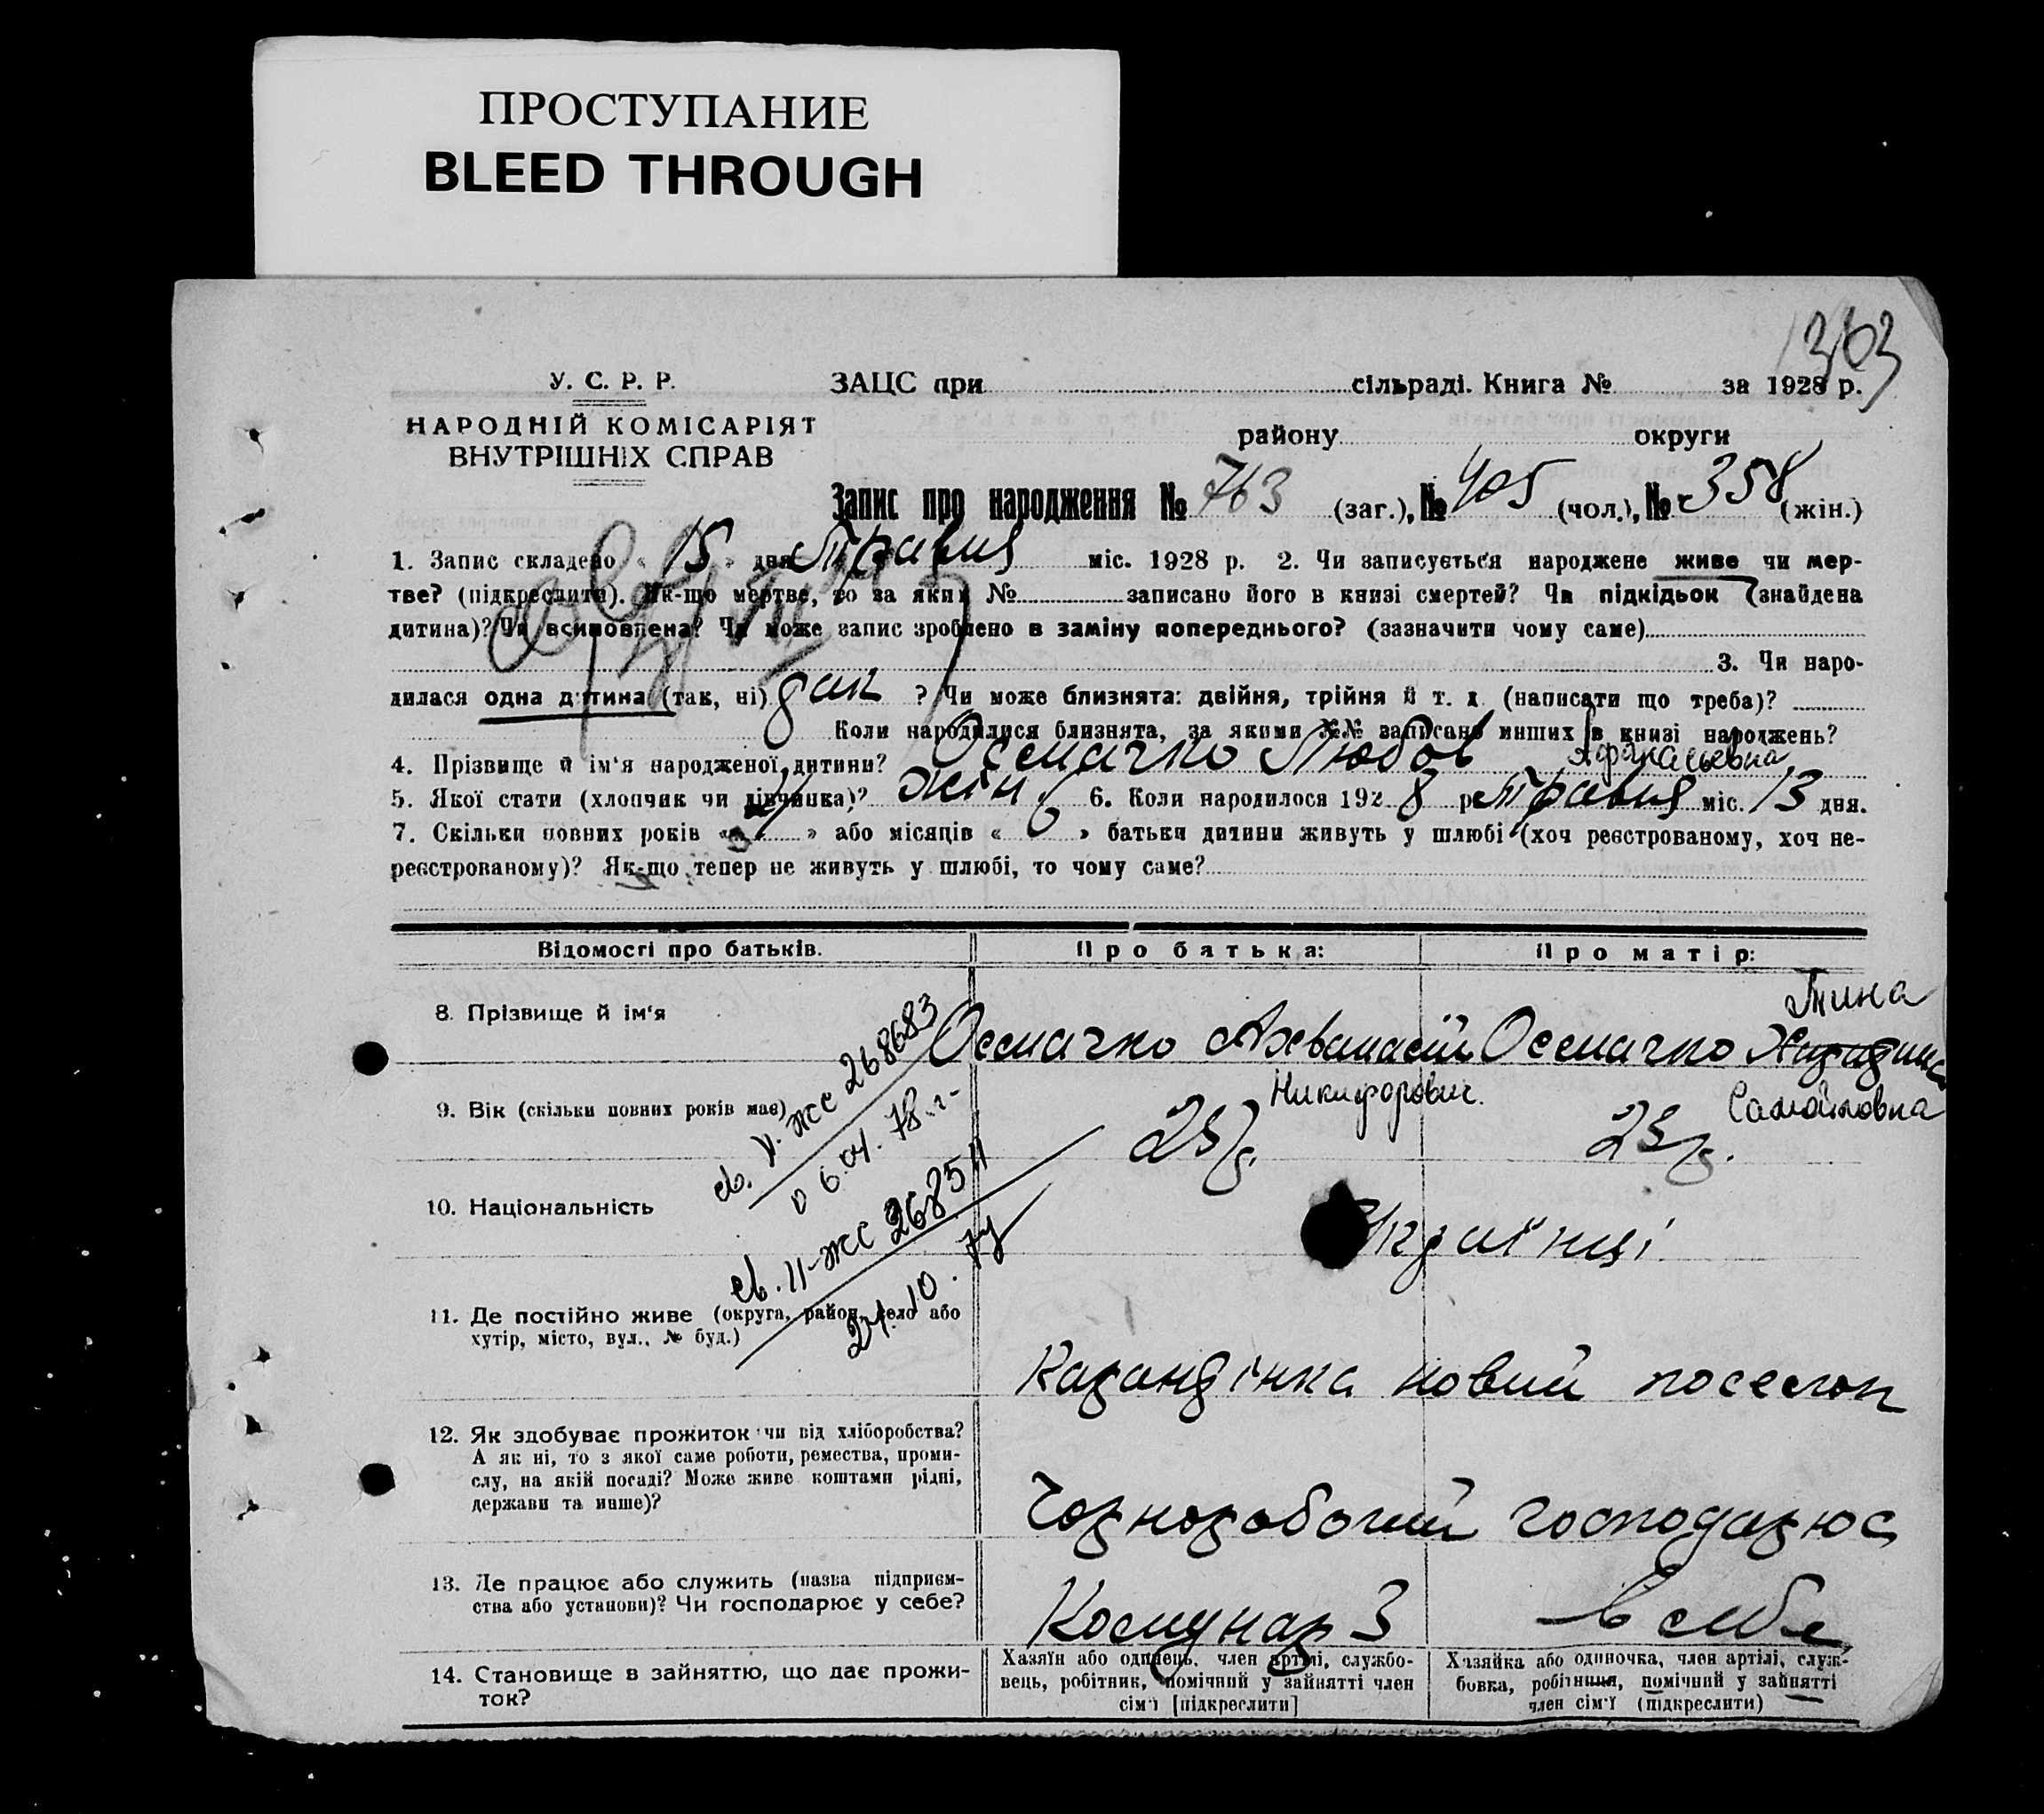 ПРОСТУПАНИЕ
BLEED THROUGH
У. С. Р. Р. ЗАЦС при сільраді. Книга № за 1928 р.
НАРОДНІЙ КОМІСАРІЯТ
ВНУТРІШНІХ СПРАВ
району округи
Запис про народження № 763 (заг.), № 405 (чол.), № 358 (жін.)
1. Запис складено « 15 » дня Травня міс. 1928 р. 2. Чи записується народжене живе чи мер-
тве? (підкреслити). Як-що мертве, то за яким № записано його в книзі смертей? Чи підкідьок (знайдена
дитина)? Чи всиновлена? Чи може запис зроблено в заміну попереднього? (зазначити чому саме)
3. Чи наро-
дилася одна дитина (так, ні) ? Чи може близнята: двійня, трійня й т. д. (написати що треба)?
Коли народилися близнята, за якими №№ записано инших в книзі народжень?
4. Прізвище й ім'я народженої дитини? Осмачко Любов Афанасьевна
5. Якої стати (хлопчик чи дівчинка)? жін. 6. Коли народилося 1928 р. Травня міс. 13 дня.
7. Скільки повних років « » або місяців « » батьки дитини живуть у шлюбі (хоч реєстрованому, хоч не-
реєстрованому)? Як-що тепер не живуть у шлюбі, то чому саме?
Відомості про батьків. Про батька: Про матір:
8. Прізвище й ім'я Осмачко Ахванасій Никифорович. Осмачко Тина Самойловна
9. Вік (скільки повних років має) 23 р. 23 р.
св. V-ЖС 268683
10. Національність Українці
св. II-ЖС
11. Де постійно живе (округа, район, село або
хутір, місто, вул., № буд.)
новий поселок
12. Як здобуває прожиток чи від хліборобства?
А як ні, то з якої саме роботи, ремества, проми-
слу, на якій посаді? Може живе коштами рідні,
держави та инше)?
Чорноробочий господарює
13. Де працює або служить (назва підприєм-
ства або установи)? Чи господарює у себе?
Комунар 3 в себе
14. Становище в зайняттю, що дає прожи-
ток?
Хазяїн або одинець, член артілі, службо-
вець, робітник, помічний у зайнятті член
сім'ї [підкреслити]
Хазяйка або одиночка, член артілі, служ-
бовка, робітниця, помічний у зайнятті
член сім'ї (підкреслити)